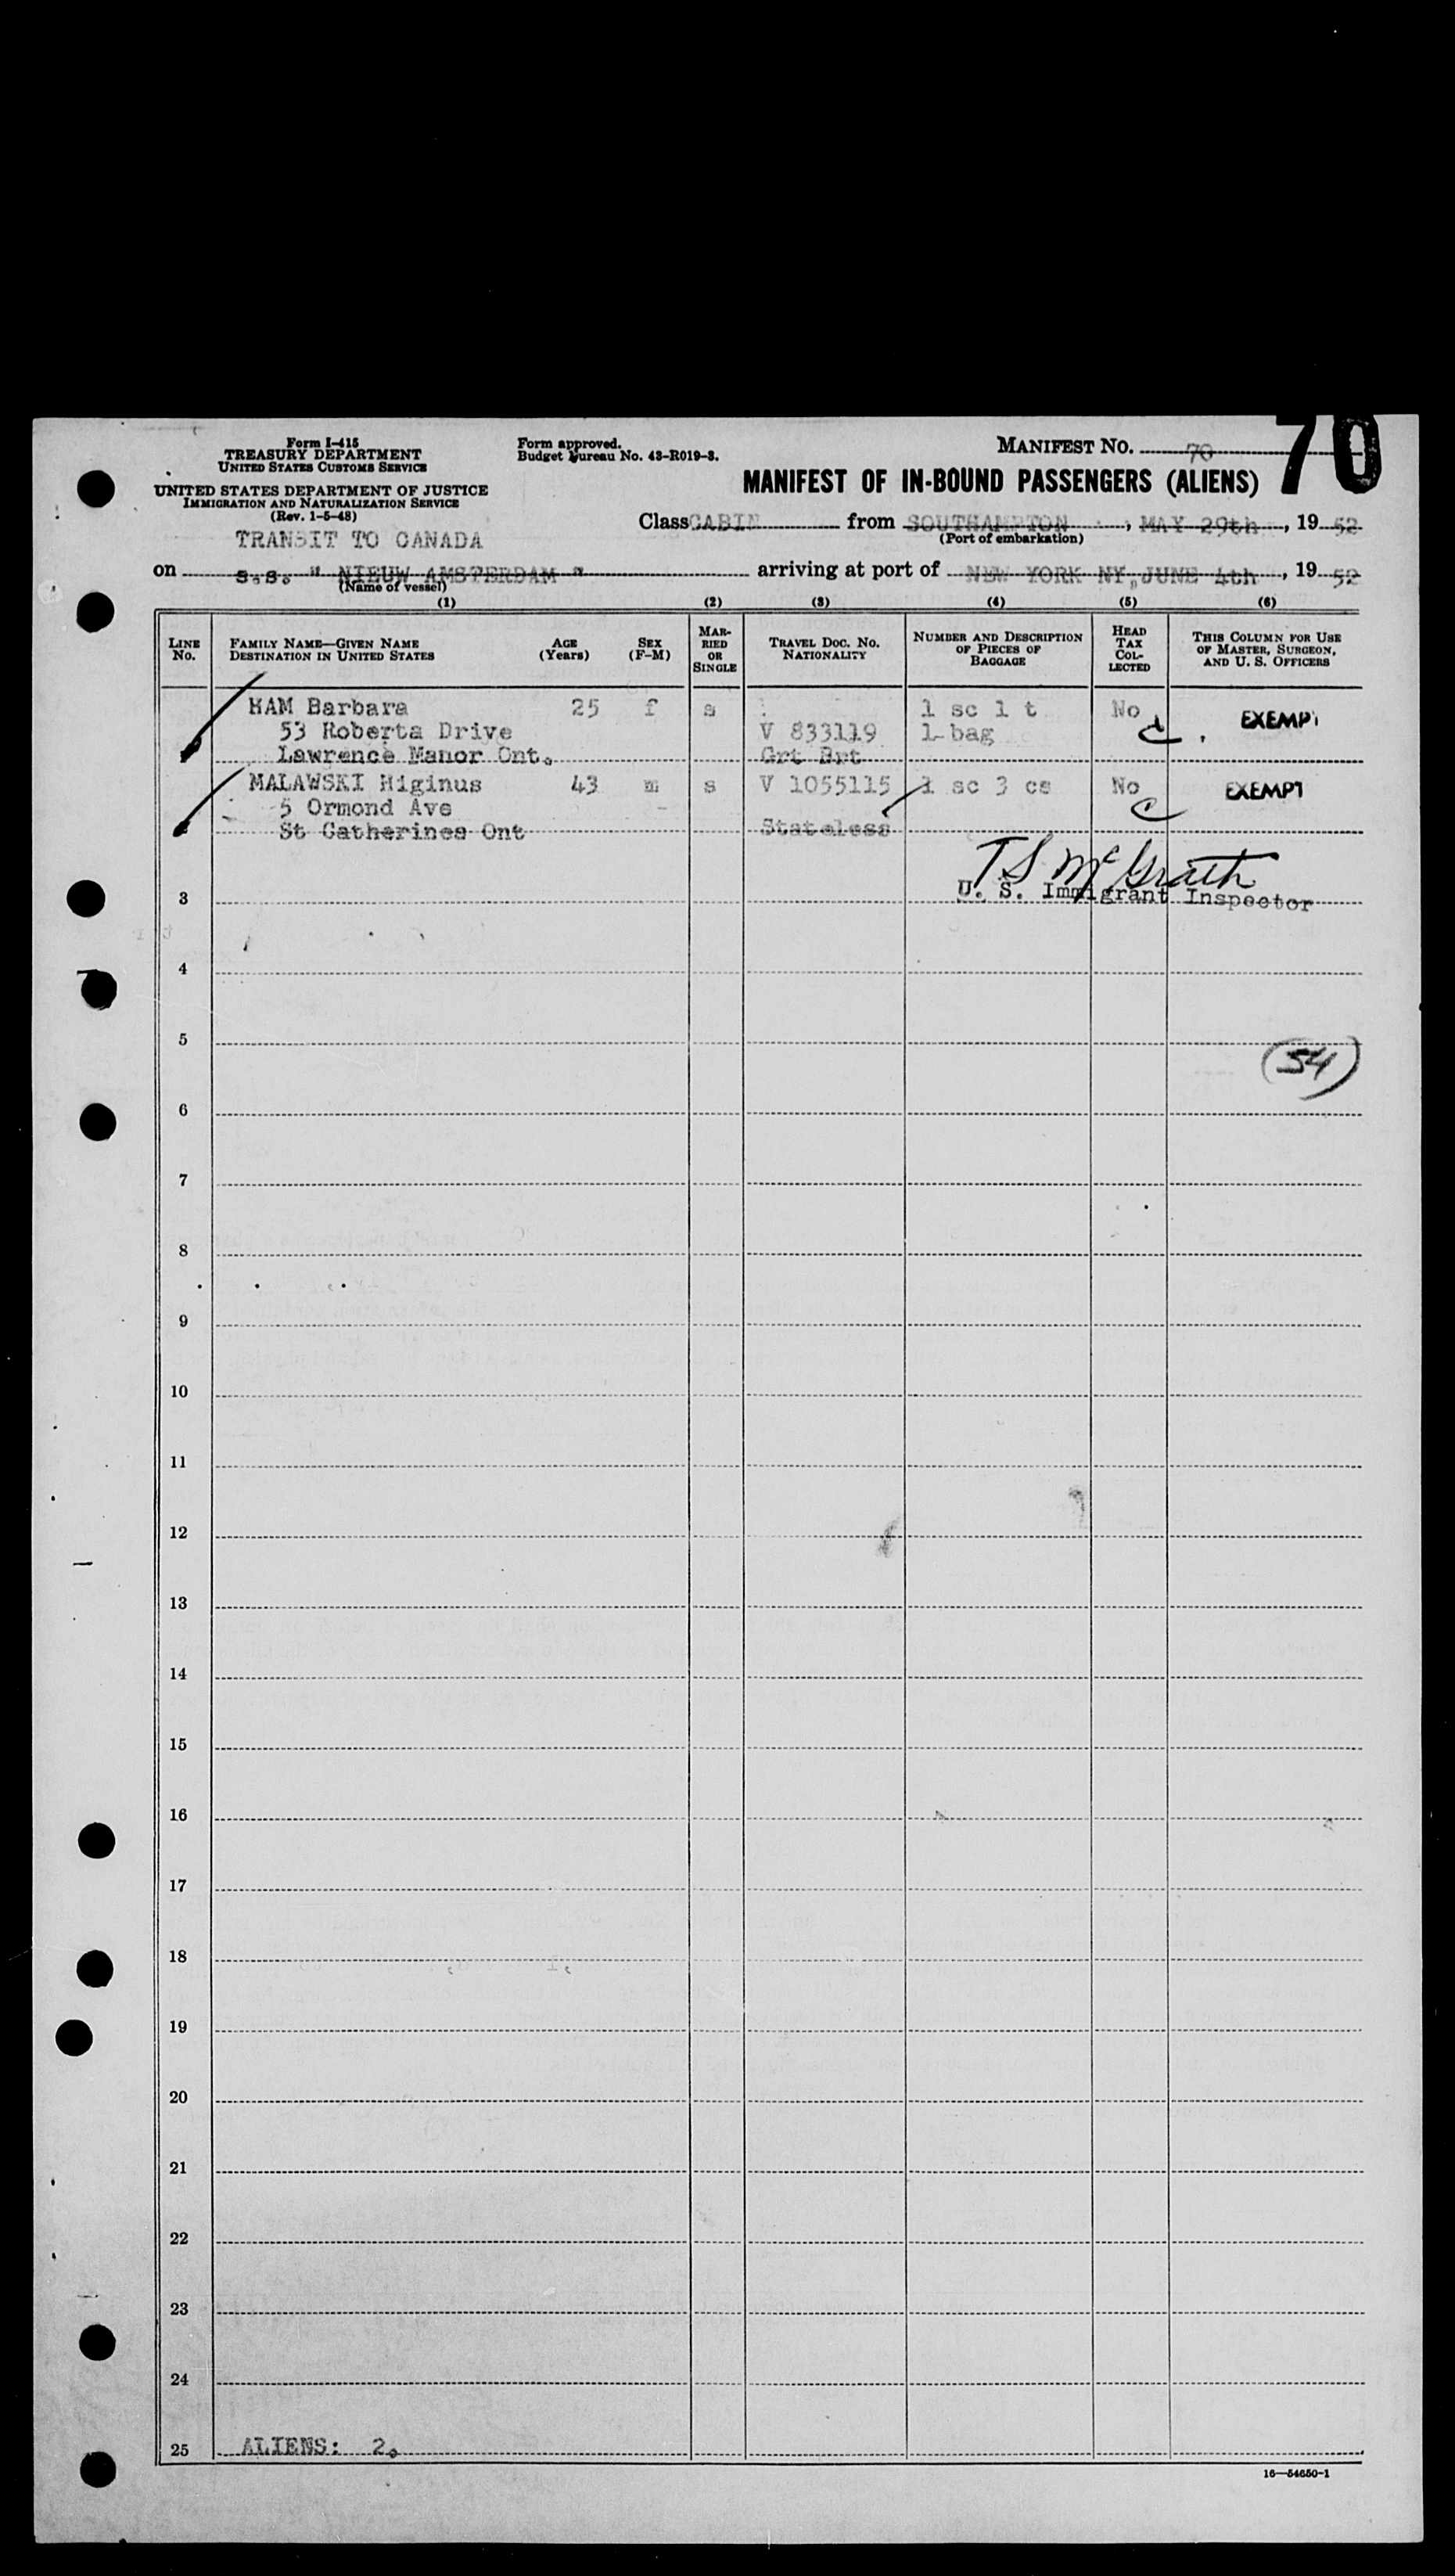 70
Form I-415
TREASURY DEPARTMENT
UNITED STATES CUSTOMS SERVICE
UNITED STATES DEPARTMENT OF JUSTICE
IMMIGRATION AND NATURALIZATION SERVICE
(Rev. 1-5-48)
Form approved.
Budget Bureau No. 43-R019-3.
MANIFEST NO. 70
MANIFEST OF IN-BOUND PASSENGERS (ALIENS)
Class CABIN from SOUTHAMPTON, MAY 29th, 1952
(Port of embarkation)
TRANSIT TO CANADA
on s.s. " NIEUW AMSTERDAM " arriving at port of NEW YORK NY, JUNE 4th, 1952
(Name of vessel)
(1) (2) (3) (4) (5) (6)
LINE No. FAMILY NAME—GIVEN NAME DESTINATION IN UNITED STATES AGE (Years) SEX (F-M) MARRIED OR SINGLE TRAVEL DOC. NO. NATIONALITY NUMBER AND DESCRIPTION OF PIECES OF BAGGAGE HEAD TAX COLLECTED THIS COLUMN FOR USE OF MASTER, SURGEON, AND U. S. OFFICERS
HAM Barbara 25 f s 1 sc 1 t No EXEMPT
53 Roberta Drive V 833119 1 bag
Lawrence Manor Ont. Grt Brt
MALAWSKI Higinus 43 m s V 1055115 1 sc 3 cs No EXEMPT
5 Ormond Ave
St Catherines Ont Stateless
T S McGrath
3 U. S. Immigrant Inspector
4
5
(54)
6
7
8
9
10
11
12
13
14
15
16
17
18
19
20
21
22
23
24
25 ALIENS: 2.
16—54650-1